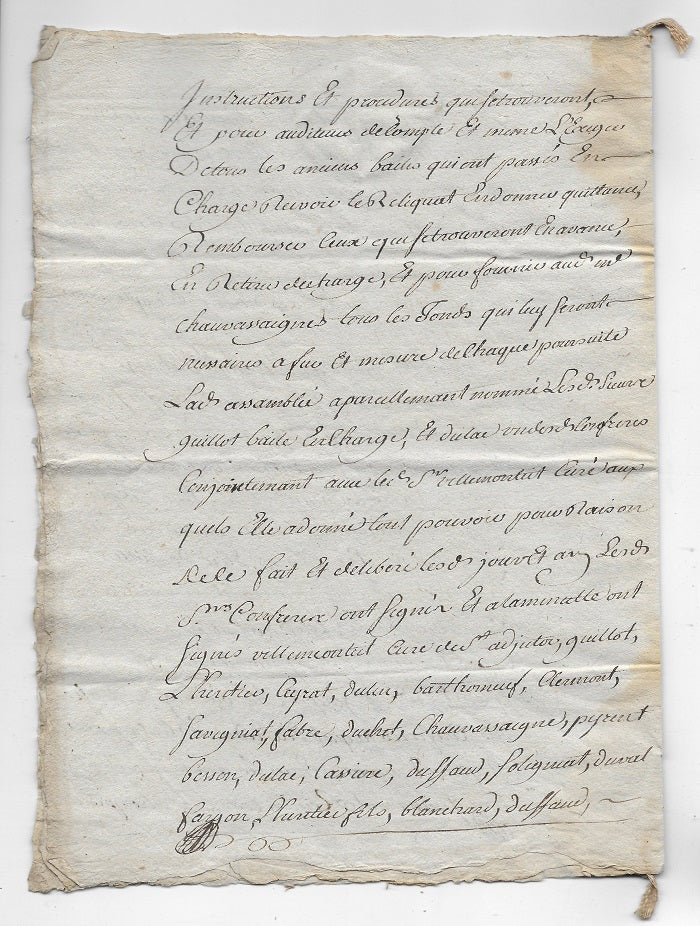 Instructions Et procedures qui se trouveront,
Et pour auditeurs de Compte Et meme L'Exiger
De tous les anciens bailes qui ont passés En
Charge Recevoir le Reliquat En donner quittance,
Rembourser Ceux qui se trouveront En avance,
En Retirer decharge, Et pour fournir aud. me
chauvassaignes tous les fonds qui luy seront
necessaires a fur Et mesure de Chaque poursuite
Lad. assamblée a pareillemant nommé Lesds. Sieurs
guillot baile En Charge, Et dulac un desds. Confreres
Conjointemant avec led. Sr. villemonteit Curé aux
quels Elle a donné tout pouvoir pour Raison
de Ce fait Et deliberé lesds. jour Et an Lesds.
Srs. Confreres ont signés Et a la minutte ont
signés villemonteit Curé de St. adjutor, guillot,
L'heritier, Ceyrat, dulac, barthomeuf, Clermont,
savigniat, fabre, duchet, Chauvassaigne, peyrent
besson, dulac, Cassiere, dussaud, soligniat, duval
fargon, L'heritier fils, blanchard, dussaud,